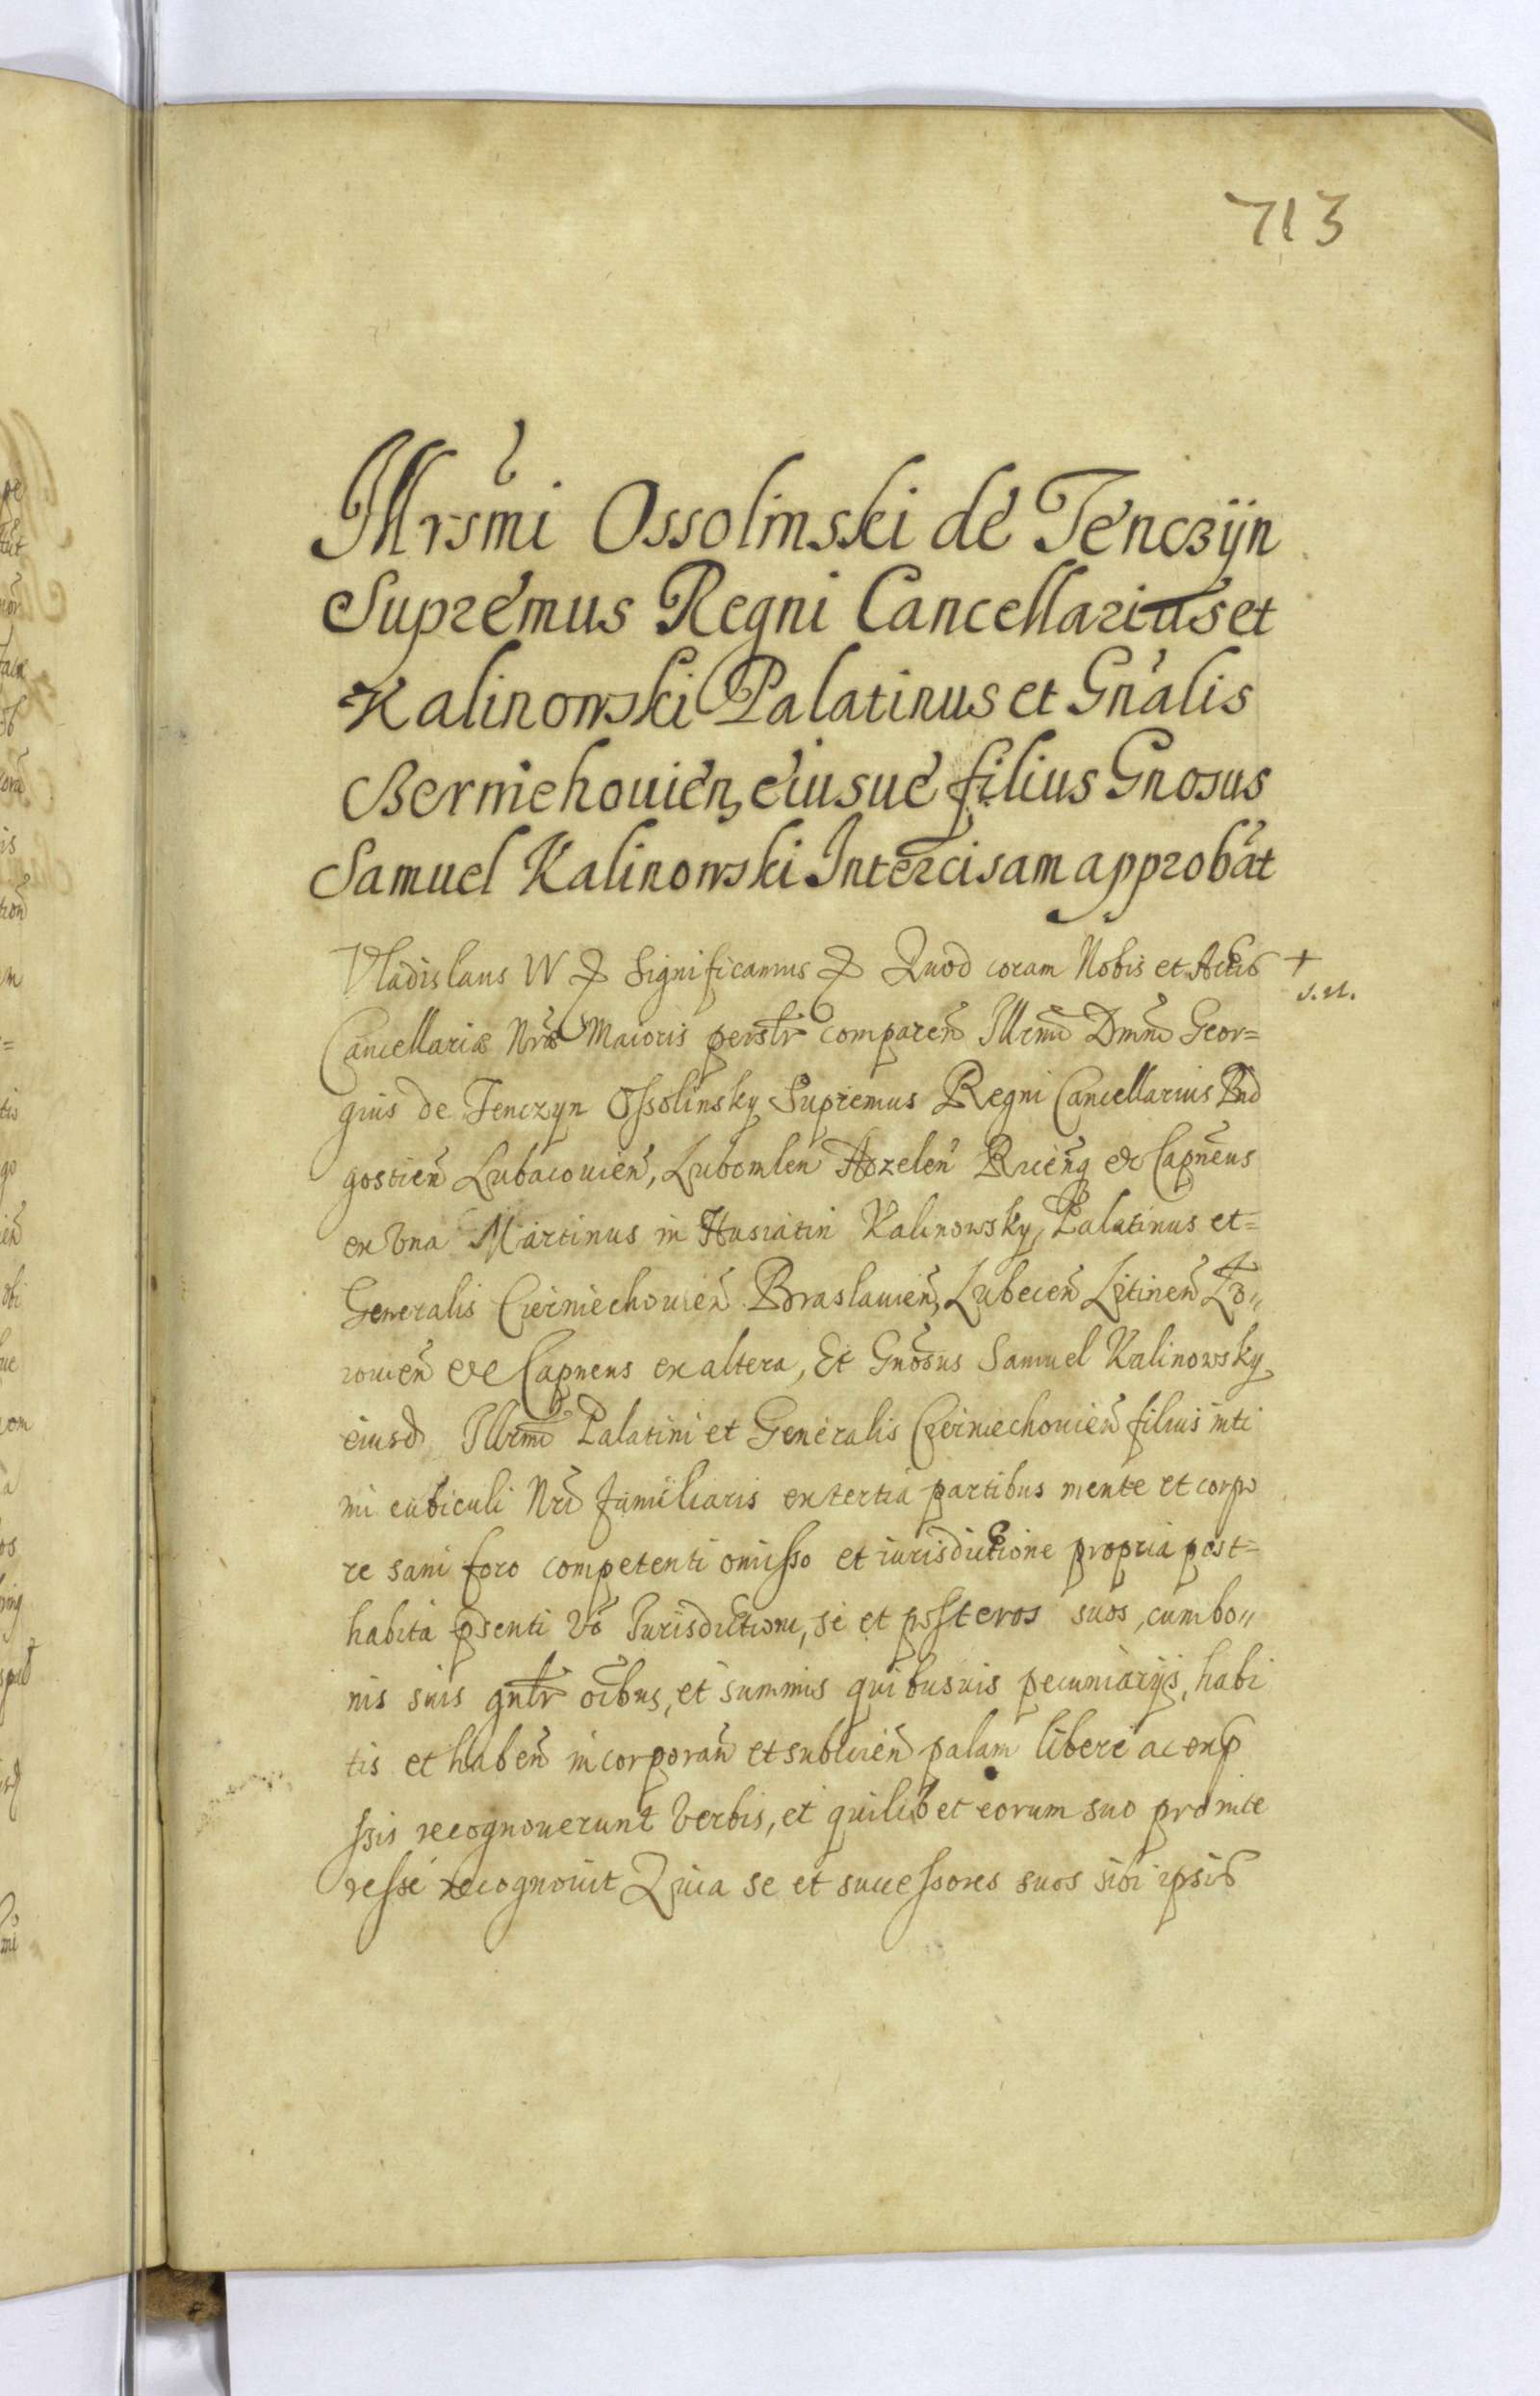 713
Illrsmi Ossolinski de Tenczÿn
Supremus Regni Cancellarius et
Kalinowski Palatinus et Gnalis
Czerniehouien, eiusue filius Gnosus
Samuel Kalinowski Intercisam approbāt
Vladislaus IV Significamus Quod coram Nobis et Actis +
s.n.
Cancellariæ Nræ Maioris persltr comparen Illrmu Dmnu Geor=
gius de Tenczyn Ossolinsky Supremus Regni Cancellarius Bid
gostien Lubacouien, Lubomlen Adzelen Ricenq et Capneus
ex una Martinus in Husiatin Kalinowsky, Palatinus et=
Generalis Czerniechouien Braslauien, Lubecen Litinen Lo„
iouien et Capneus ex altera, Et Gnosus Samuel Kalinowsky
eiusd Illrmi Palatini et Generalis Czerniechouien filius inti
mi cubiculi Nri familiaris ex tertia partibus mente et corpo
re sani foro competenti omisso et iurisdictione propria post=
habita psenti vo Iurisdictioni, se et posteros suos, cum bo„
nis suis gnltr oibus, et summis quibusuis pecuniarijs, habi
tis et haben incorporan et subiicien palam libere ac exp
ssis recognouerunt verbis, et quilibet eorum suo pro inte
resse recognouit Quia se et successores suos sibi ipsis